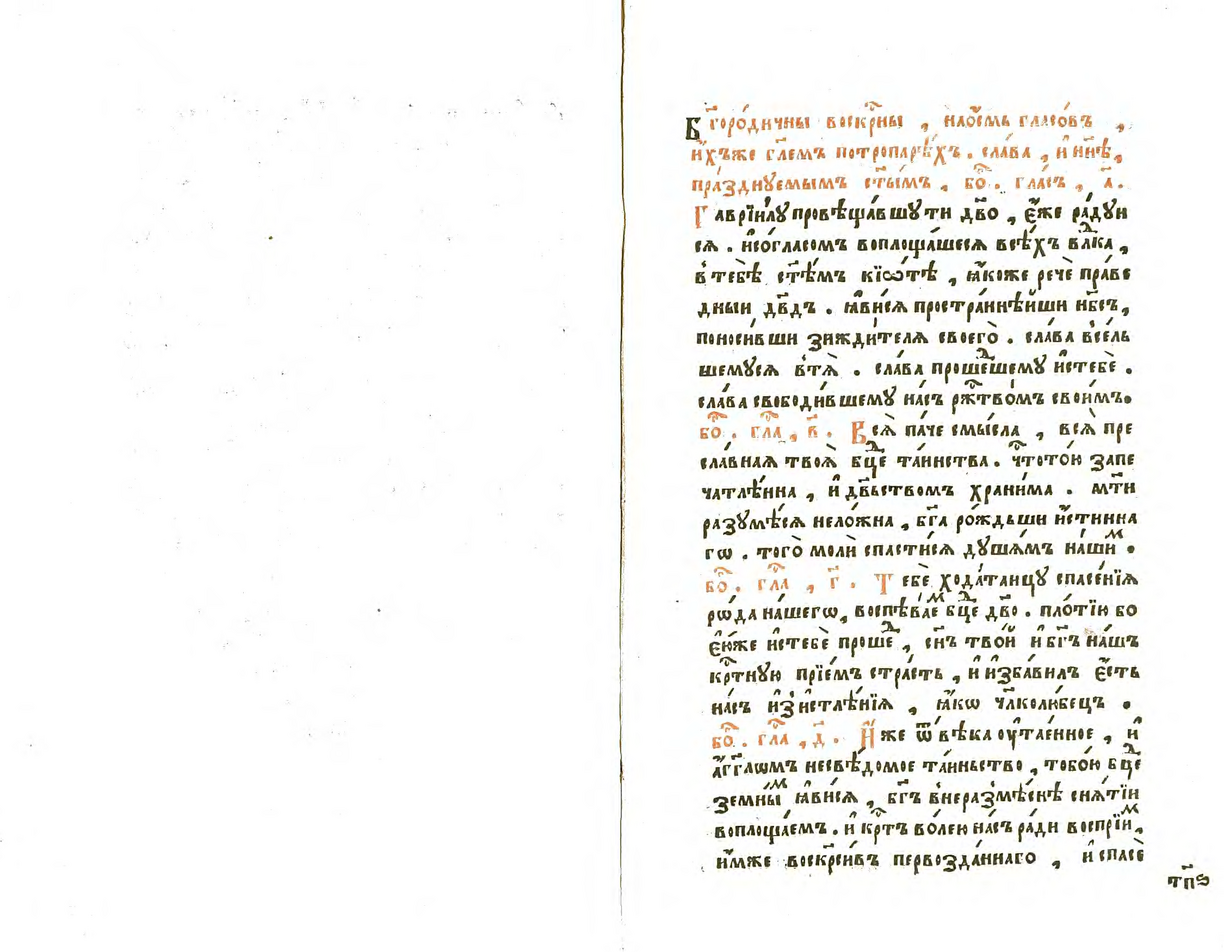 Бг҃оро́дичны воскрⷭ҇ны , на о́смь гласо́въ ,
и҆́хъже гл҃емъ по тропарѣ́хъ . сла́ва , и҆ ны́нѣ ,
пра́зднуемымъ ст҃ы́мъ , бо҃ . гла́съ , а҃ .
Гаврїи́лꙋ провѣща́вшꙋ ти дв҃о , є҆́же ра́дꙋи
сѧ . и҆ со гла́сомъ воплоща́шесѧ всѣ́хъ влⷣка ,
в тебѣ̀ ст҃ѣ́мъ кїѡ́тѣ , ꙗ҆́коже речѐ пра́ве
дныи дв҃дъ . ꙗ҆ви́сѧ простра́ннѣйши нб҃съ ,
поноси́вши зижди́телѧ своего̀ . сла́ва всє́ль
шемꙋсѧ в тѧ̀ . сла́ва проше́дшемꙋ и҆с тебѐ .
сла́ва свободи́вшемꙋ на́съ ржⷭ҇тво́мъ свои́мъ .
бо҃ . гла , в҃ . Всѧ̀ па́че смы́сла , всѧ̀ пре
сла́внаѧ твоѧ̀ бц҃е та́инства . чⷭ҇тото́ю запе
чатлѣ́нна , и҆ дв҃ьствомъ храни́ма . мт҃и
разꙋмѣ́сѧ нело́жна , бг҃а ро́ждьши и҆́стинна
гѡ . того̀ молѝ спасти́сѧ дꙋша́мъ на́шиⷨ .
бо҃ . гла , г҃ . Тебѐ хода́таицꙋ спасе́нїѧ
рѡ́да на́шегѡ , воспѣва́еⷨ бцⷣе дв҃о . пло́тїю бо
є҆́юже и҆с тебѐ прошеⷣ , сн҃ъ тво́й и҆ бг҃ъ на́шъ
крⷭ҇тнꙋю прїе́мъ стра́сть , и҆ и҆зба́вилъ є҆́сть
на́съ и҆з̾ истлѣ́нїѧ , ꙗ҆́кѡ чл҃колю́бецъ .
бо҃ . гла , д҃ . И҆́же ѿ вѣ́ка ᲂу҆тае́нное , и҆
а҆́гг҃лѡмъ несвѣ́домое та́иньство , тобо́ю бцⷣе
земны́ⷨ ꙗ҆ви́сѧ , бг҃ъ в неразмѣ́снѣ снѧ́тїи
воплоща́емъ . и҆ крⷭ҇тъ во́лею на́съ ра́ди воспрїи́ⷨ ,
и҆́мже воскр҃си́въ первозда́ннаго , и҆ спасѐ
тп҃ѕ